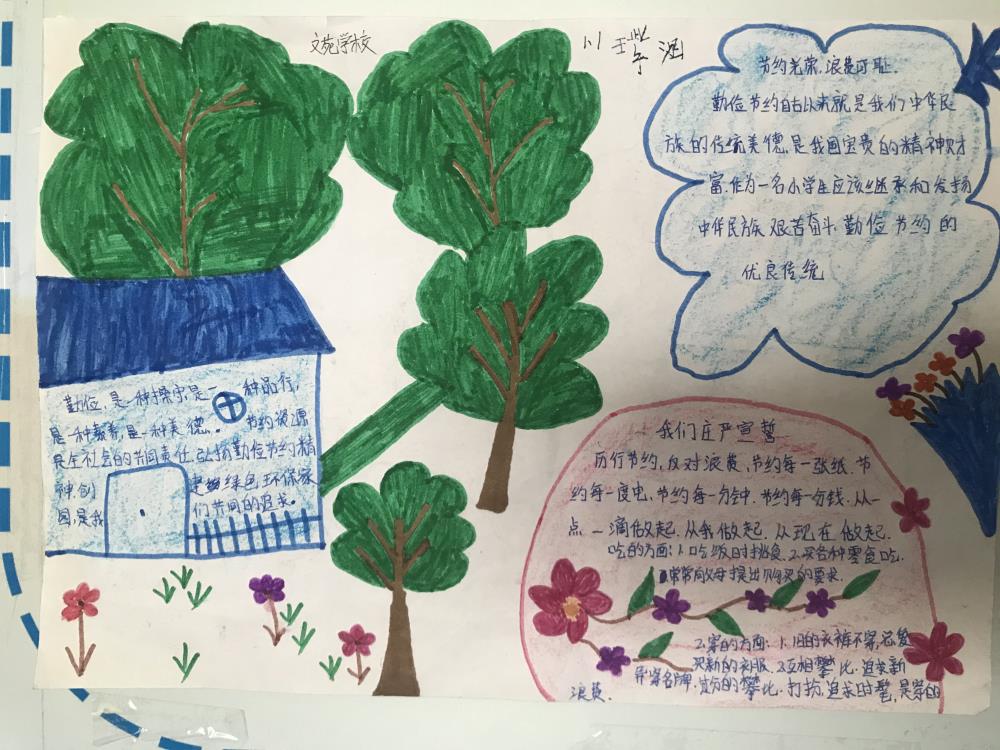 文苑学校
1.1
涵
节约光荣,浪费可耻.
勤俭节约自古以来就是我们中华民
族的传统美德,是我国宝贵的精神财
富.作为一名小学生应该继承和发扬
中华民族艰苦奋斗.勤俭节约的
优良传统
勤俭,是一种操守,是一种品行,
是一种素养,是一种美德... 节约资源
是全社会的共同责任,弘扬勤俭节约精
神创 建 绿色环保家
园,是我 们共同的追求.
我们庄严宣誓
厉行节约,反对浪费,节约每一张纸.节
约每一度电,节约每一分钟.节约每一分钱.从一
点一滴做起,从我做起,从现在做起.
吃的方面:1.吃饭时挑食.2.买各种零食吃.
3.常常向父母提出购买的要求.
2.穿的方面:1.旧的衣裤不穿,总爱
买新的衣服.2.互相攀比.追求新
异穿名牌.过分的攀比.打扮,追求时髦,是穿的
浪费.